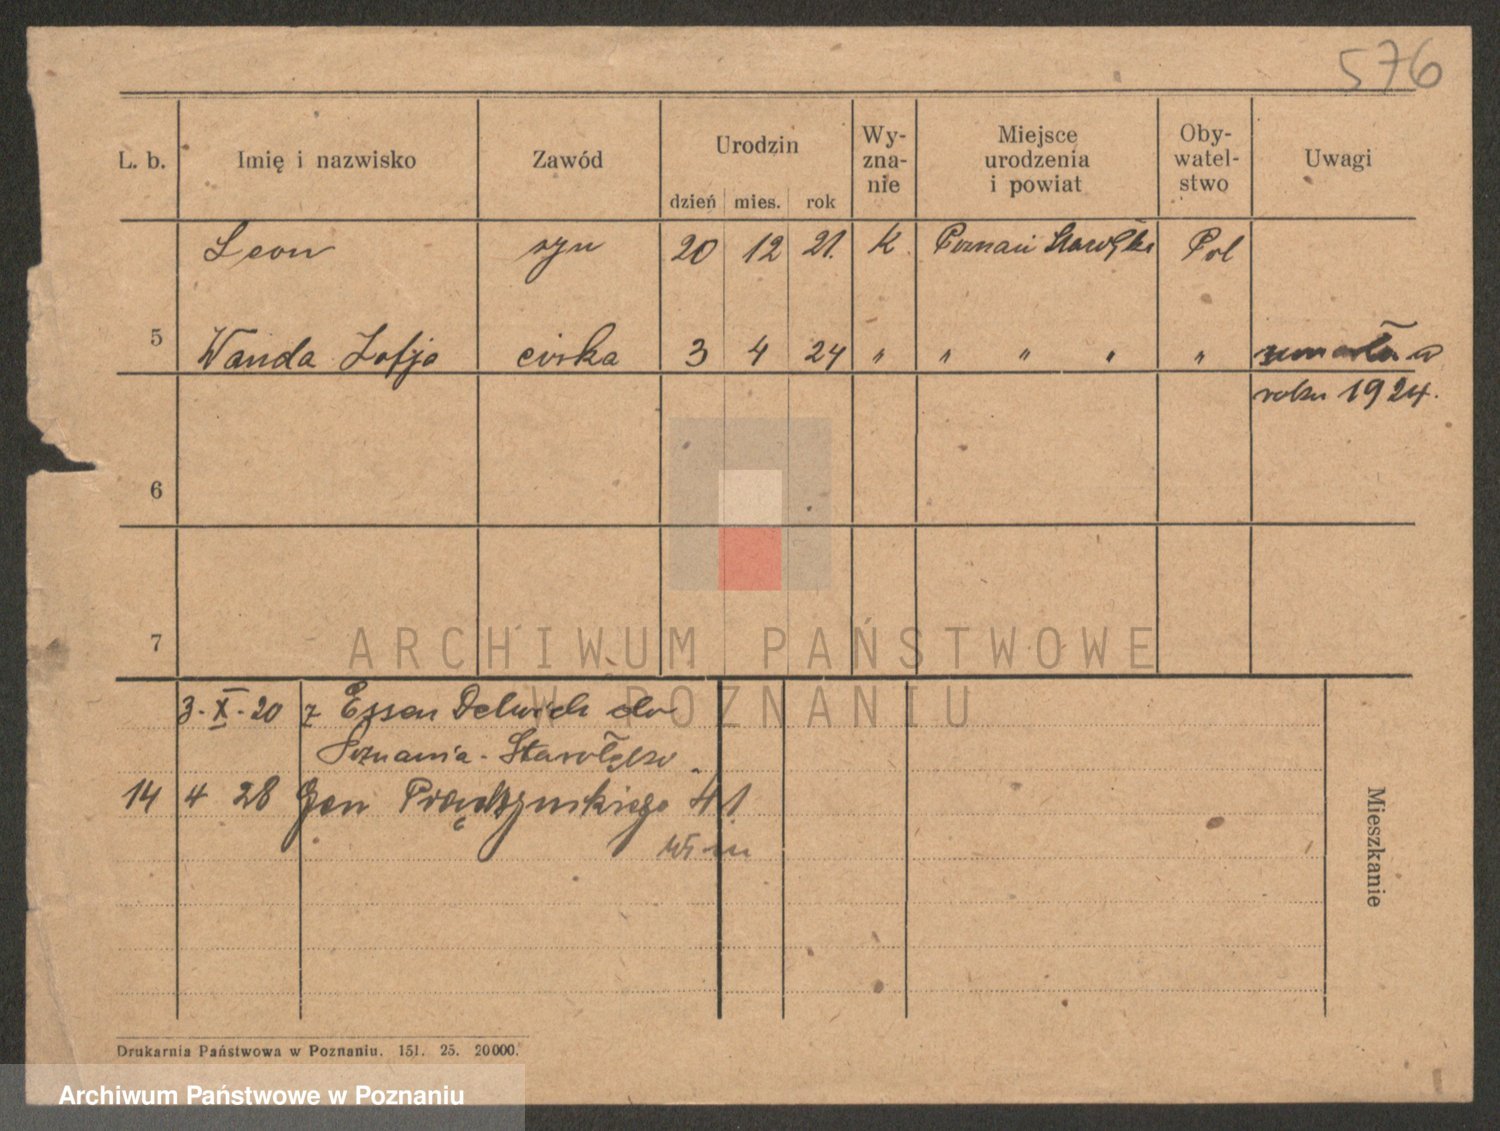 576
L. b. Imię i nazwisko Zawód Urodzin Wy-zna-nie Miejsce urodzenia i powiat Oby-watel-stwo Uwagi
dzień mies. rok
Leon syn 20 12 21. K. Poznań Starołęka Pol
5 Wanda Zofja córka 3 4 24 " " " " " zmarła w
roku 1924.
6
7
ARCHIWUM PAŃSTWOWE
W POZNANIU
3. X. 20 z Essen Delwich do
Poznania - Starołęka
14 4 28 Gen Prądzyńskiego 41
Mieszkanie
Drukarnia Państwowa w Poznaniu. 151. 25. 20000.
Archiwum Państwowe w Poznaniu